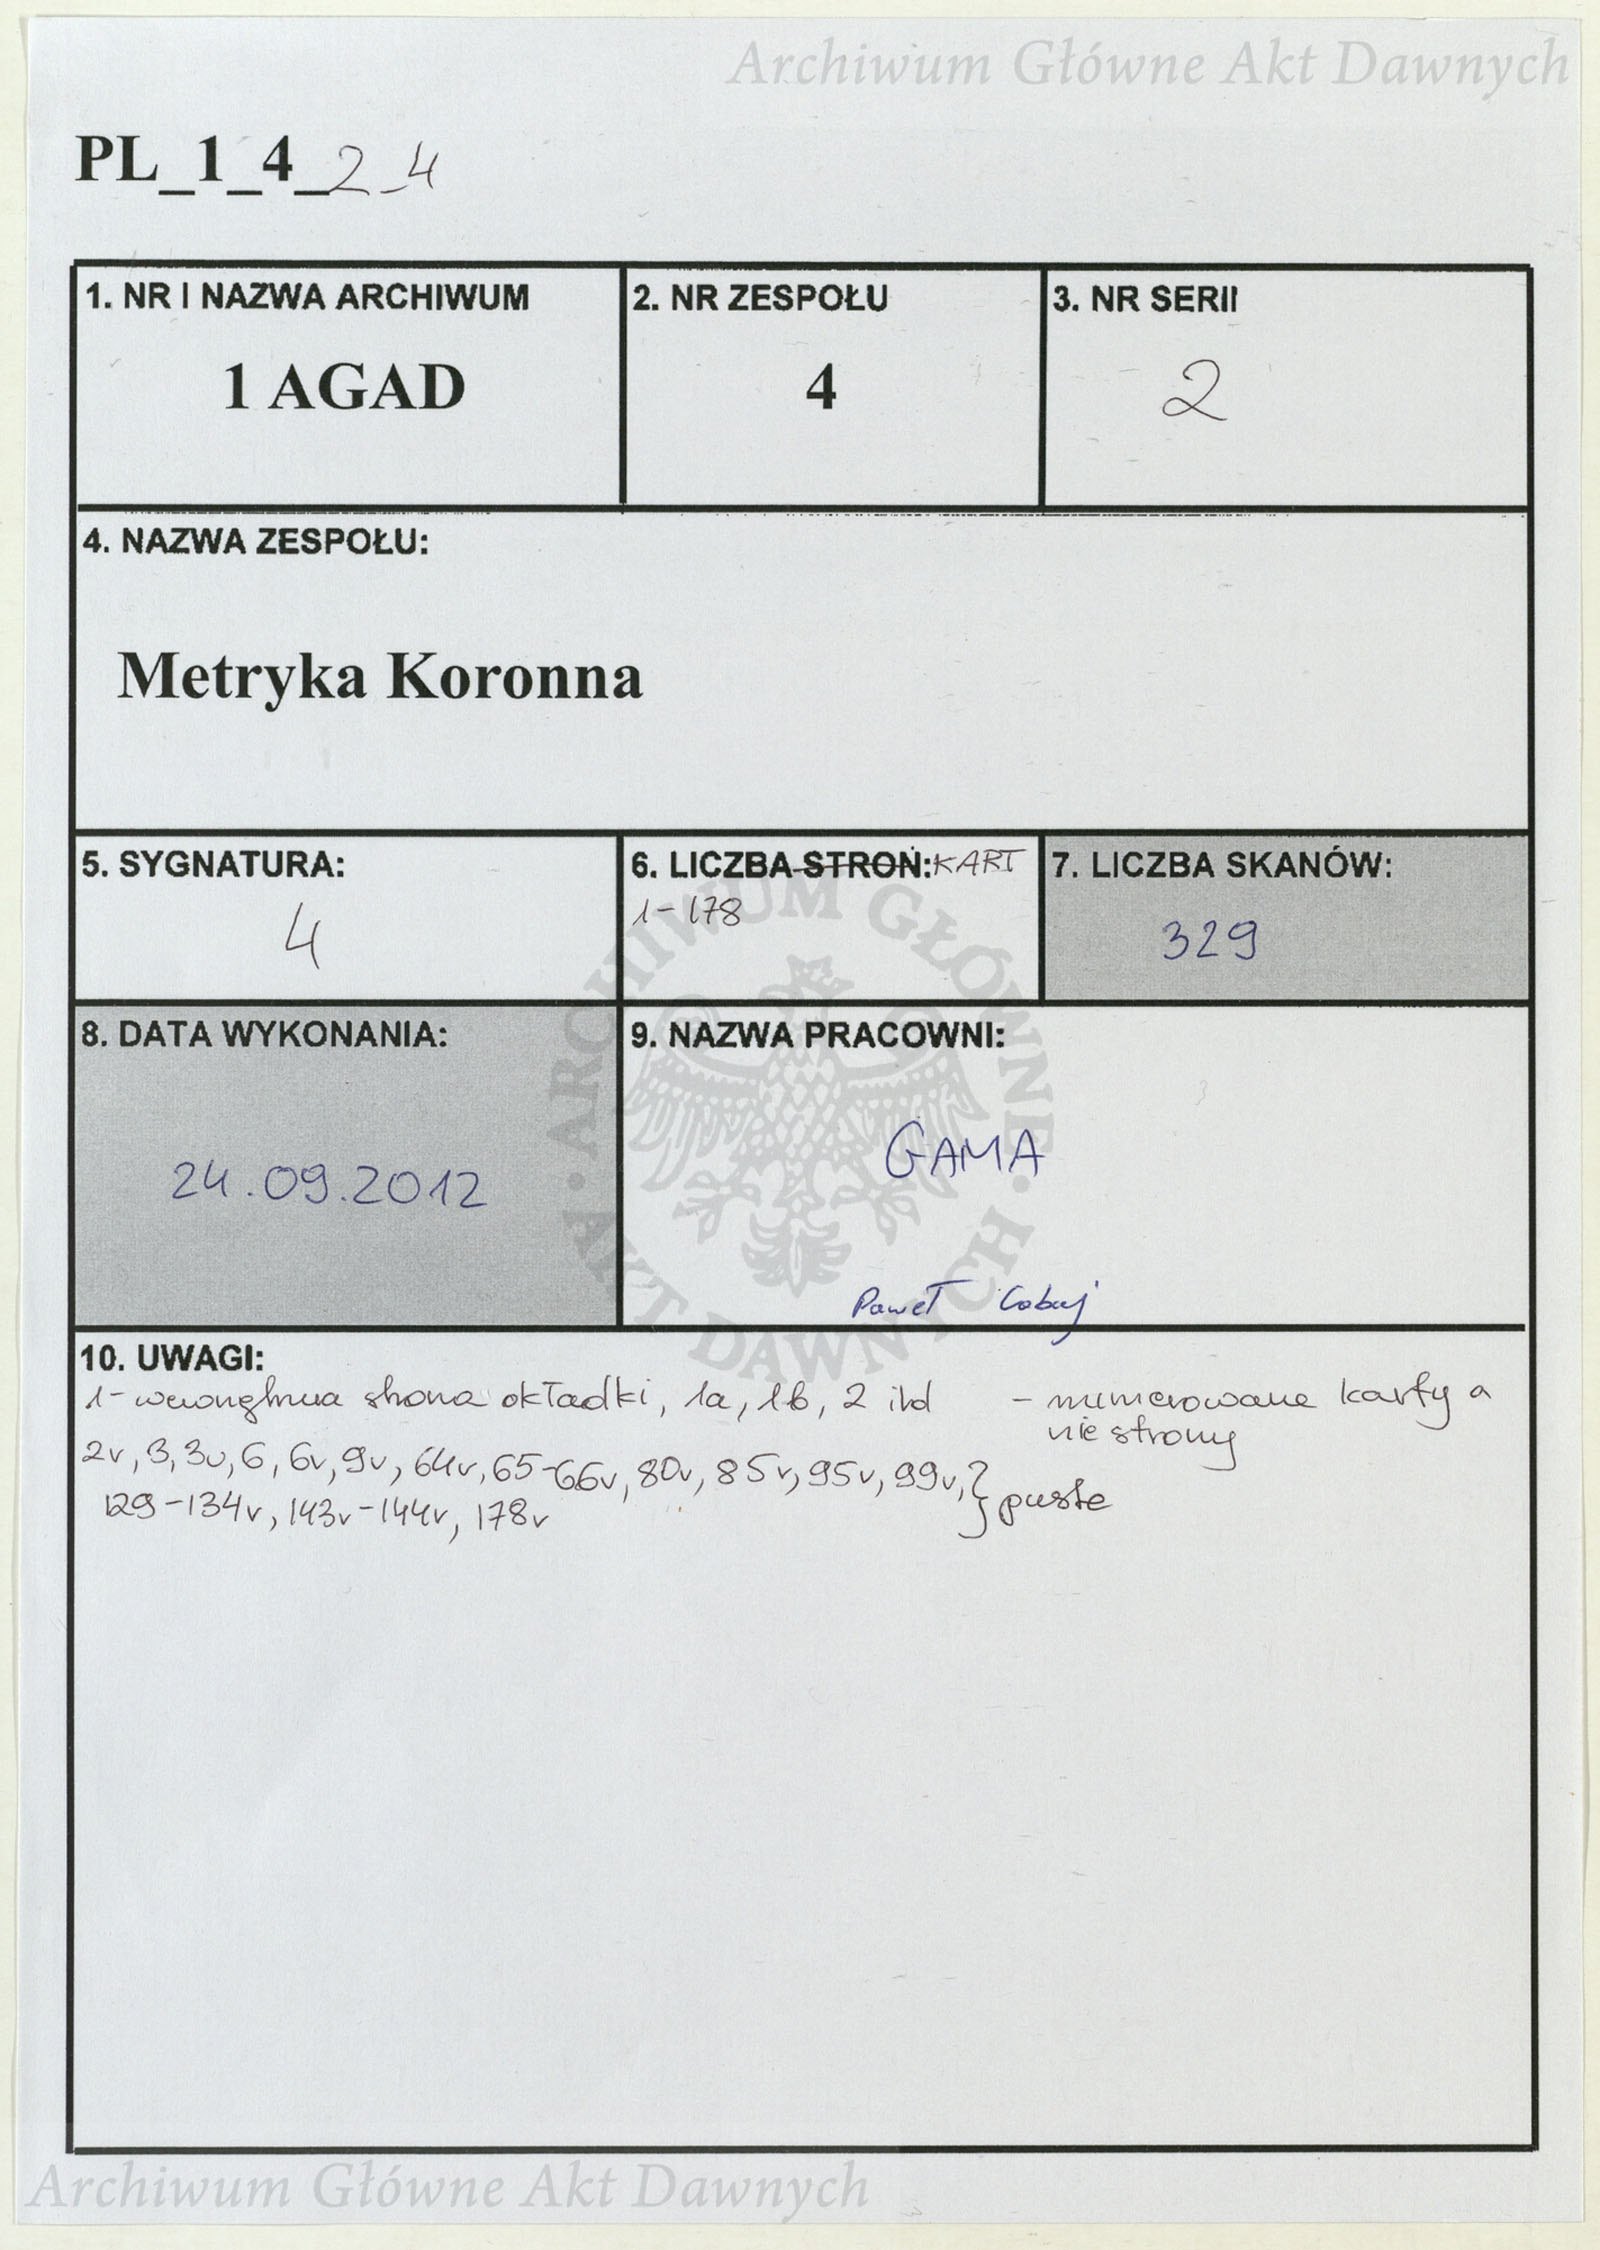 Archiwum Główne Akt Dawnych
PL_1_4_2_4
1. NR I NAZWA ARCHIWUM
1 AGAD
2. NR ZESPOŁU
4
3. NR SERII
2
4. NAZWA ZESPOŁU:
Metryka Koronna
5. SYGNATURA:
4
6. LICZBA STRON: KART
1-178
7. LICZBA SKANÓW:
329
8. DATA WYKONANIA:
24.09.2012
9. NAZWA PRACOWNI:
GAMA
Paweł
ARCHIWUM GŁÓWNE · AKT DAWNYCH ·
10. UWAGI:
1- wewnętrzna strona okładki, 1a, 1b, 2 itd - numerowane karty a
nie strony
2v, 3, 3v, 6, 6v, 9v, 64v, 65-66v, 80v, 85v, 95v, 99v, }
129-134v, 143v-144v, 178v } puste
Archiwum Główne Akt Dawnych